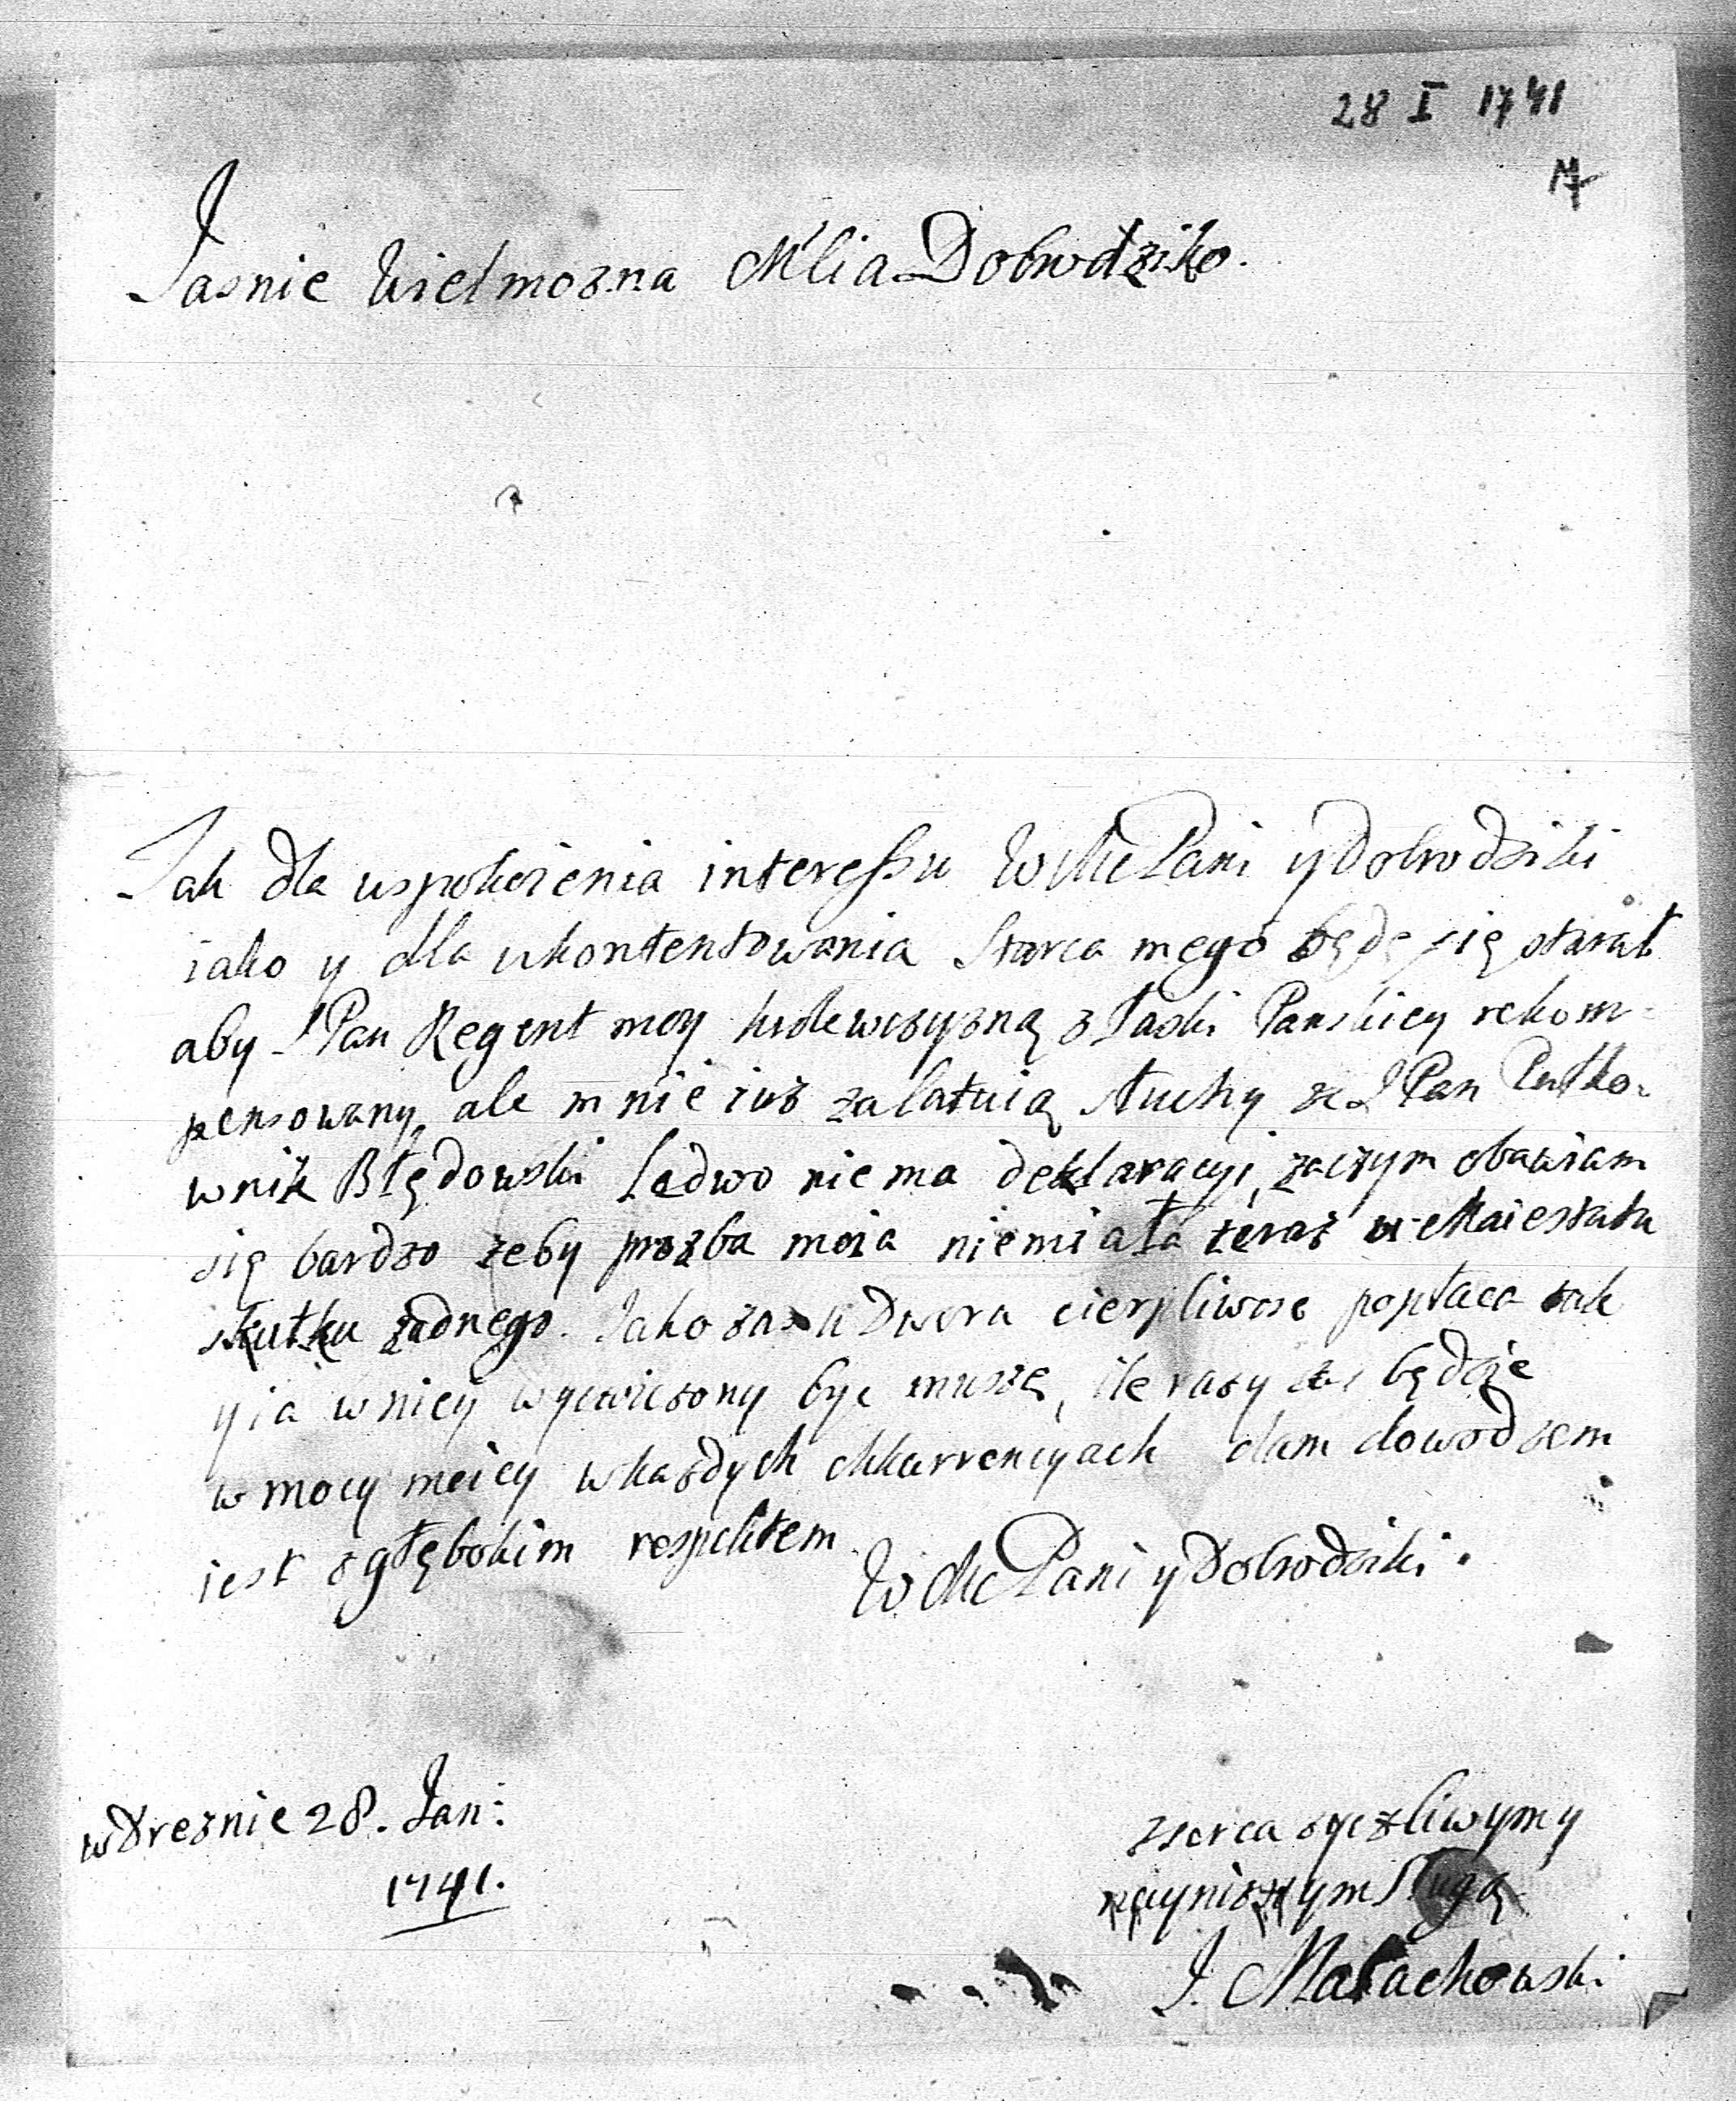 28 I 1741
Jasnie Wielmozna Mcia Dobrodziko.
Jak dla uspokoienia interessu WMc Pani y Dobrodziki
iako y dla ukontentowania Starca mego będę się starał
aby JPan Regent moy krolewszyzną z Łaski Panskiey rekom=
pensowany, ale mnie iuz zalatuią słuchy ze JPan Pułko=
wnik Błędowski Ledwo niema deklaracyi, zaczym obawiam
się bardzo zeby prozba moia niemiała teraz u Maiestatu
skutku zadnego. Jako zas u Dworu cierpliwosc popłaca tak
y ia w niey wycwiczony byc muszę, ile razy zas będzie
w mocy moiey w kazdych okkurrencyach dam dowod zem
iest z głębokim respektem
WMc Pani y Dobrodziki.
w Dreznie 28. Jan:
1741.
z serca zyczliwym y
naynizszym Sługą
J. Małachowski